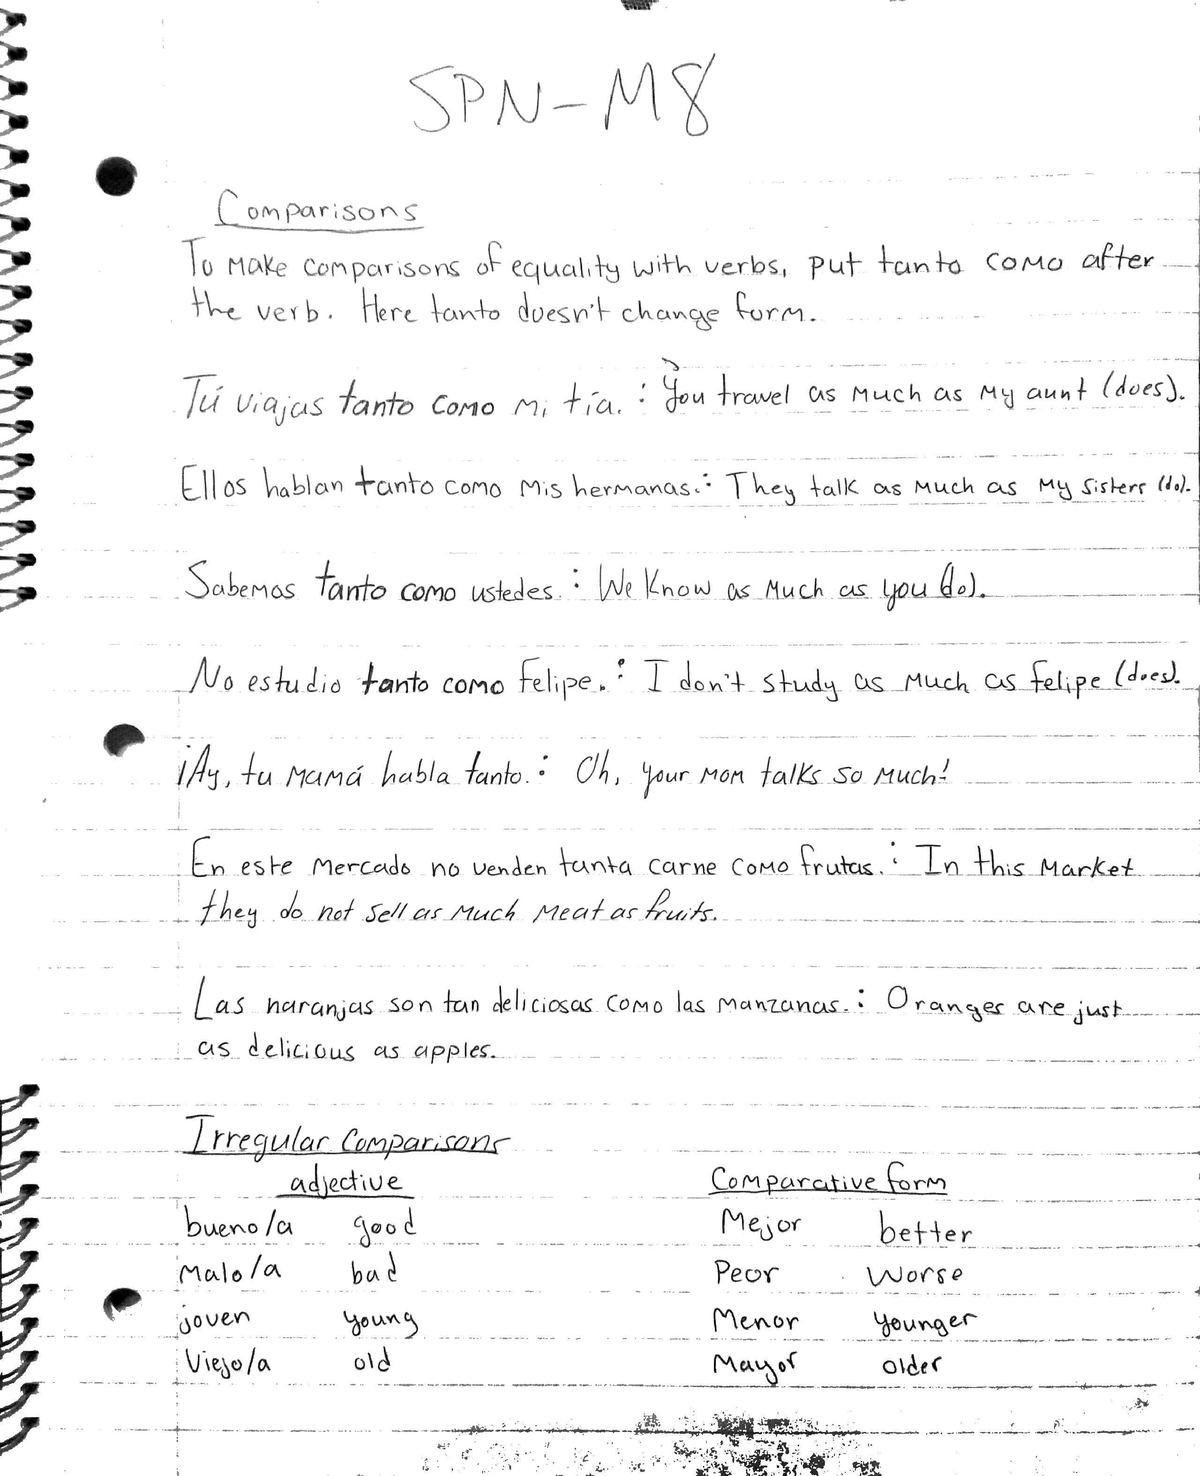 SPN-M8
Comparisons
To make comparisons of equality with verbs, put tanto como after
the verb. Here tanto doesn't change form.
Tú viajas tanto como mi tía. : You travel as much as my aunt (does).
Ellos hablan tanto como mis hermanas. : They talk as much as my sisters (do).
Sabemos tanto como ustedes. : We know as much as you (do).
No estudio tanto como Felipe. : I don't study as much as Felipe (does).
¡Ay, tu mamá habla tanto. : Oh, your mom talks so much!
En este mercado no venden tanta carne como frutas. : In this market
they do not sell as much meat as fruits.
Las naranjas son tan deliciosas como las manzanas. : Oranges are just
as delicious as apples.
Irregular Comparisons
adjective Comparative form
bueno/a good Mejor better
Malo/a bad Peor worse
joven young Menor younger
Viejo/a old Mayor older